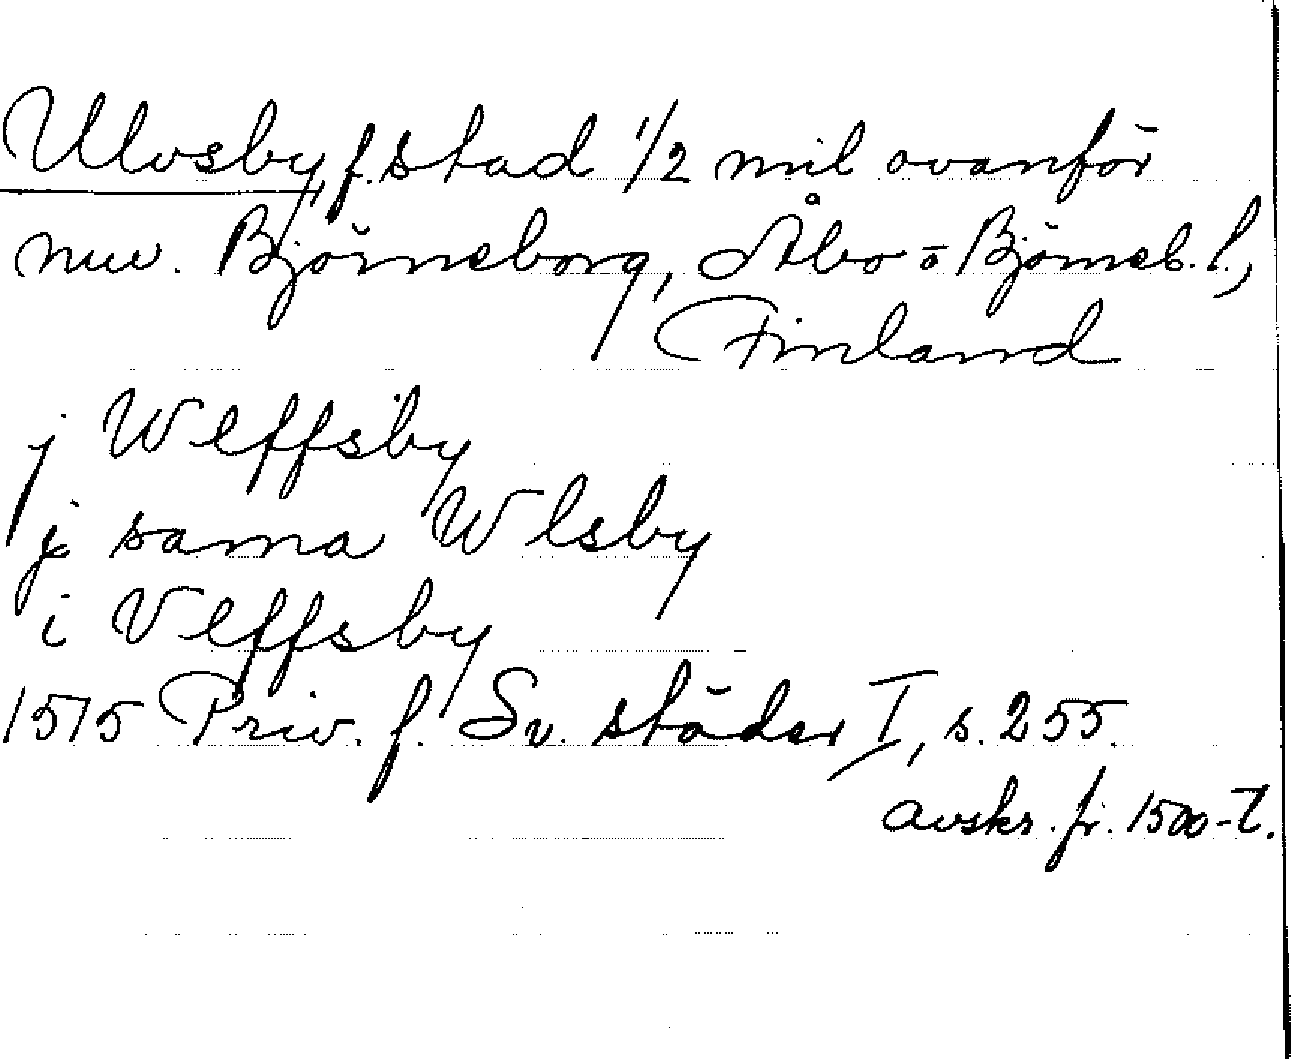 Ulvsby, f. stad 1/2 mil ovanför
nuv. Björneborg, Åbo o Björneb. l.,
Finland
j Wlffsby
j sama Wlsby
i Vlffsby
1515 Priv. f. Sv. städer I, s. 255.
avskr. fr. 1500-t.